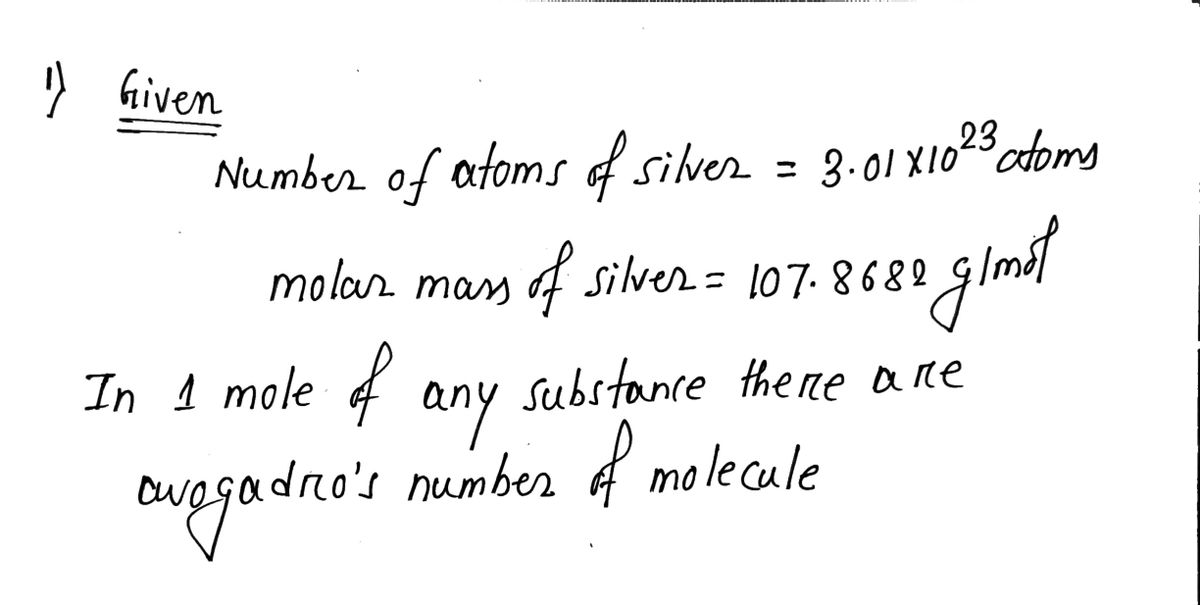 1) Given
Number of atoms of silver = 3.01 X10²³ atoms
molar mass of silver = 107.8682 g/mol
In 1 mole of any substance there are
avogadro's number of molecule